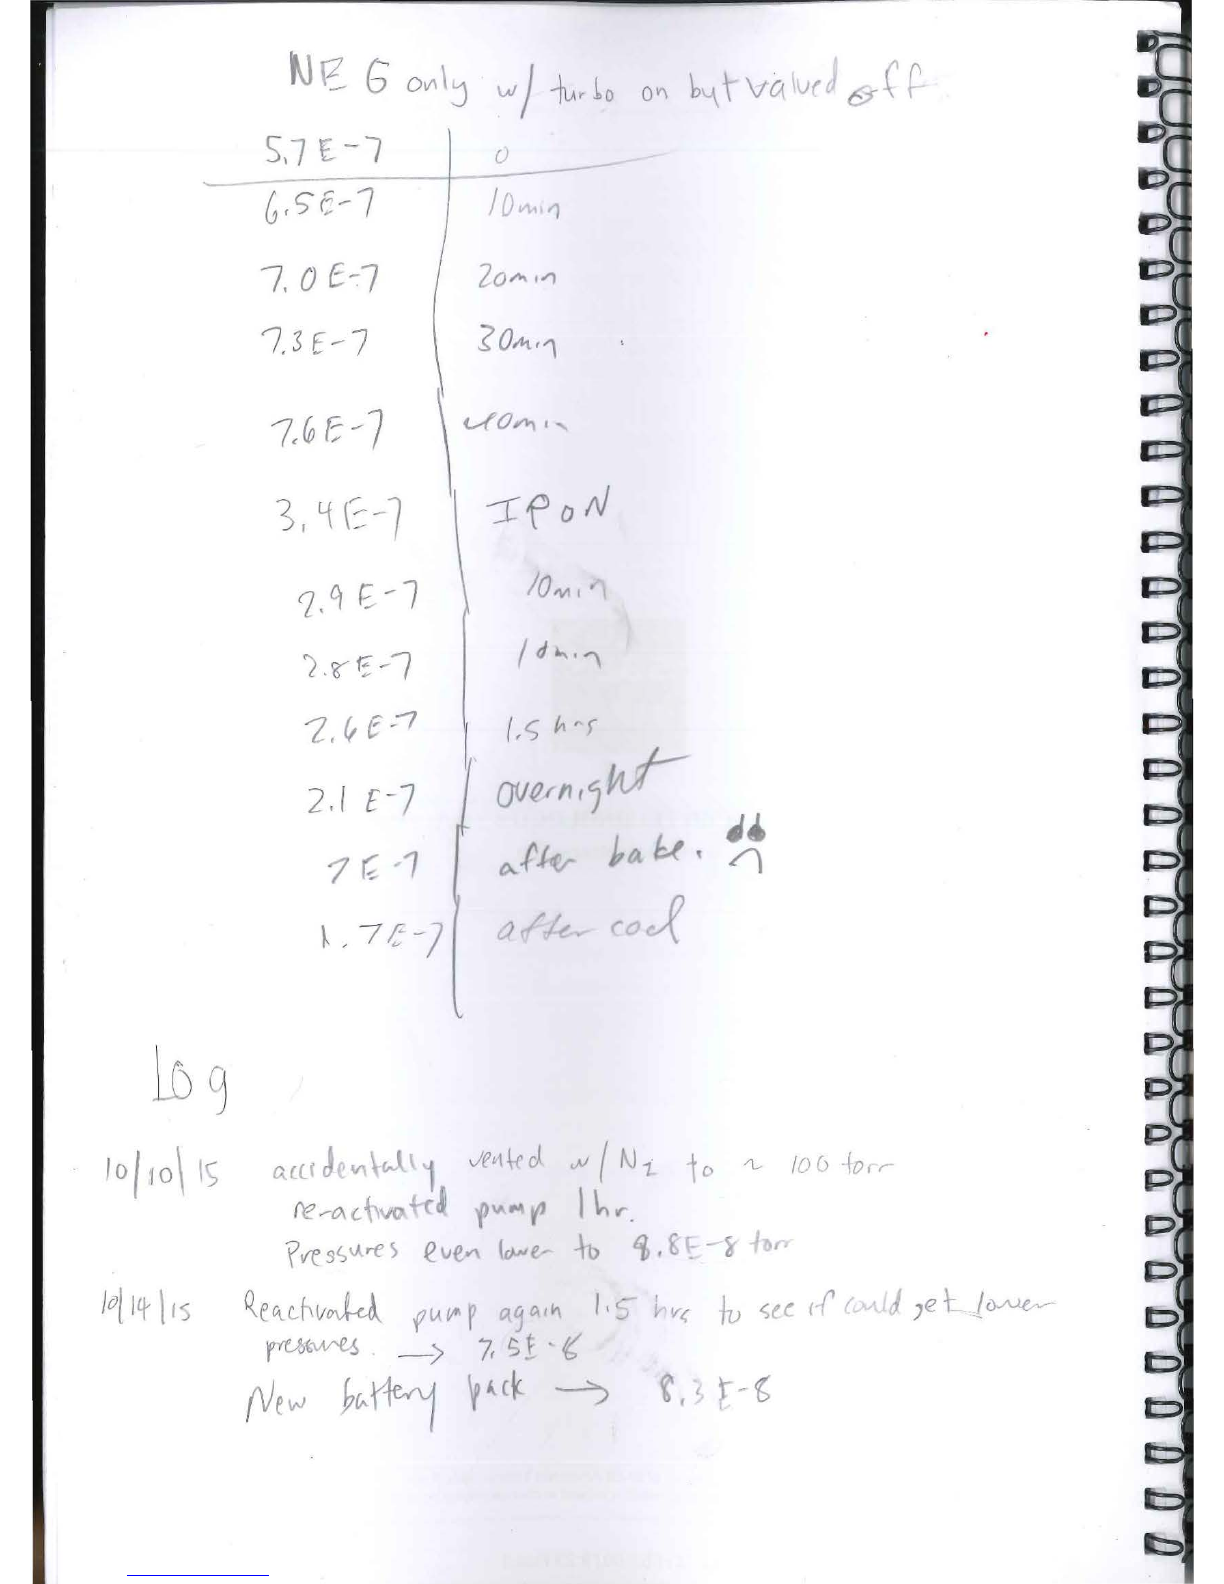 NEG only w/ turbo on but valved off
5.7E-7 0
6.5E-7 10min
7.0E-7 20min
7.3E-7 30min
7.6E-7 40min
3.4E-7 IP ON
2.9E-7 10min
2.8E-7 10min
2.6E-7 1.5 hrs
2.1E-7 overnight
7E-7 after bake.
1.7E-7 after cool
Log
10/10/15 accidentally vented w/ N2 to ~ 100 torr
re-activated pump 1hr.
Pressures even lower to 8.8E-8 torr
10/14/15 Reactivated pump again 1.5 hrs to see if could get lower
pressures. → 7.5E-8
New battery pack → 8.3E-8